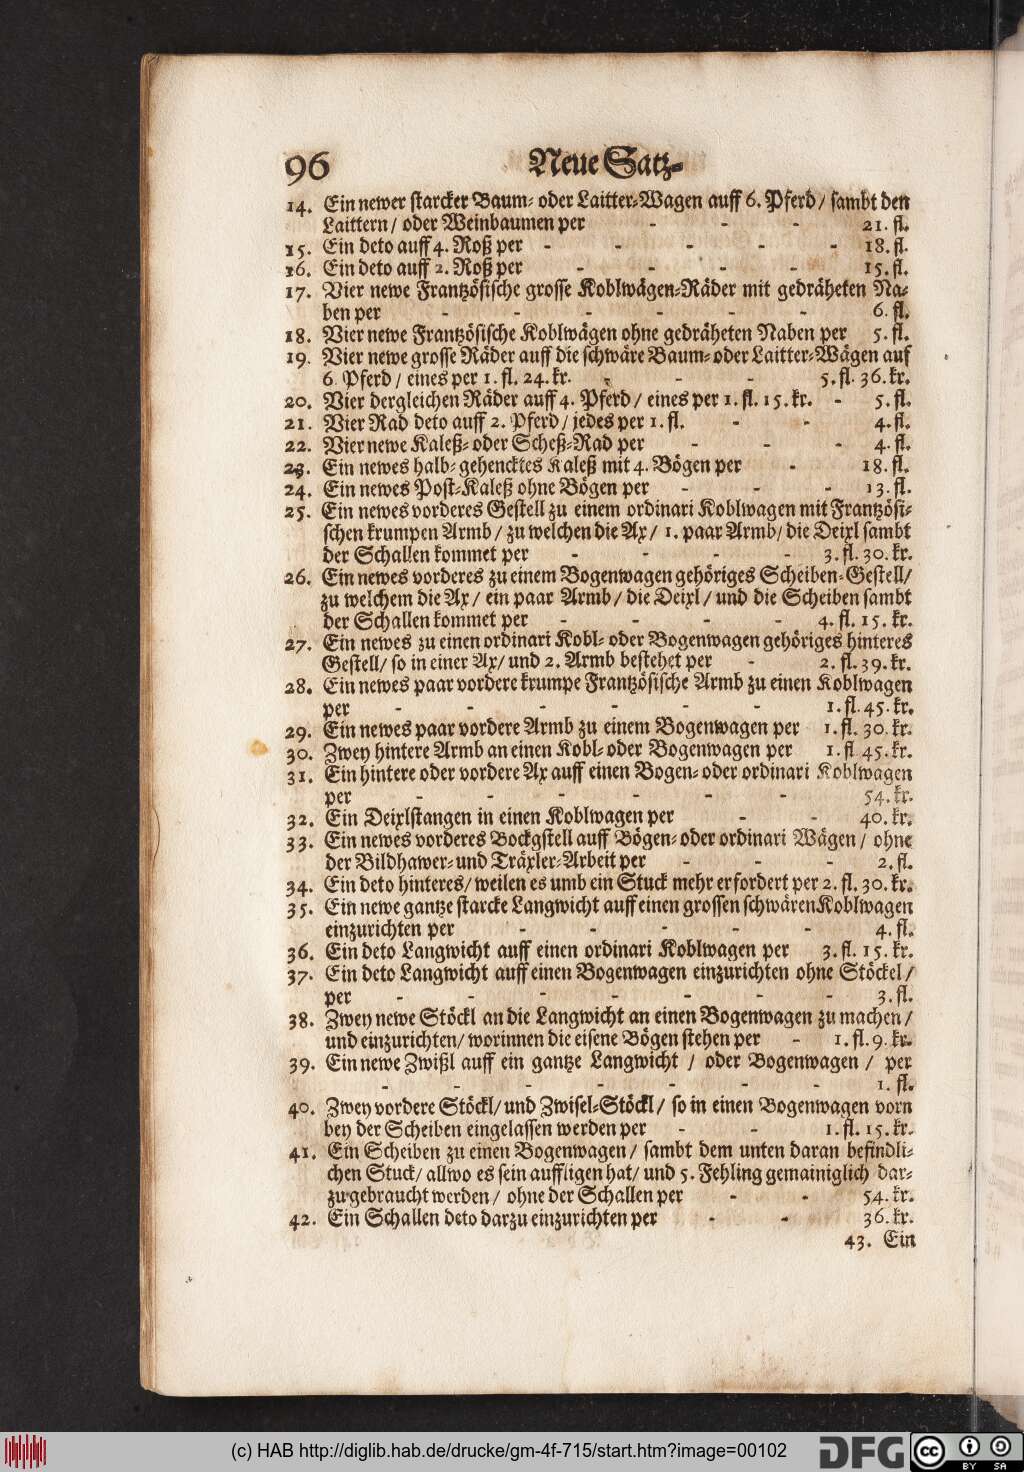 96 Neue Satz-
14. Ein newer starcker Baum- oder Laitter-Wagen auff 6. Pferd / sambt den
Laittern / oder Weinbaumen per - - - 21. fl.
15. Ein deto auff 4. Roß per - - - - - 18. fl.
16. Ein deto auff 2. Roß per - - - - 15. fl.
17. Vier newe Frantzösische grosse Koblwägen-Räder mit gedräheten Na-
ben per - - - - - - 6. fl.
18. Vier newe Frantzösische Koblwägen ohne gedräheten Naben per 5. fl.
19. Vier newe grosse Räder auff die schwäre Baum- oder Laitter-Wägen auf
6. Pferd / eines per 1. fl. 24. kr. - - - 5. fl. 36. kr.
20. Vier dergleichen Räder auff 4. Pferd / eines per 1. fl. 15. kr. - 5. fl.
21. Vier Rad deto auff 2. Pferd / jedes per 1. fl. - - 4. fl.
22. Vier newe Kaleß- oder Scheß-Rad per - - - 4. fl.
23. Ein newes halb-gehencktes Kaleß mit 4. Bögen per - 18. fl.
24. Ein newes Post-Kaleß ohne Bögen per - - - 13. fl.
25. Ein newes vorderes Gestell zu einem ordinari Koblwagen mit Frantzösi-
schen krumpen Armb / zu welchen die Ax / 1. paar Armb / die Deixl sambt
der Schallen kommet per - - - - 3. fl. 30. kr.
26. Ein newes vorderes zu einem Bogenwagen gehöriges Scheiben-Gestell /
zu welchem die Ax / ein paar Armb / die Deixl / und die Scheiben sambt
der Schallen kommet per - - - - 4. fl. 15. kr.
27. Ein newes zu einen ordinari Kobl- oder Bogenwagen gehöriges hinteres
Gestell / so in einer Ax / und 2. Armb bestehet per - 2. fl. 39. kr.
28. Ein newes paar vordere krumpe Frantzösische Armb zu einen Koblwagen
per - - - - - - 1. fl. 45. kr.
29. Ein newes paar vordere Armb zu einem Bogenwagen per 1. fl. 30. kr.
30. Zwey hintere Armb an einen Kobl- oder Bogenwagen per 1. fl. 45. kr.
31. Ein hintere oder vordere Ax auff einen Bogen- oder ordinari Koblwagen
per - - - - - - 54. kr.
32. Ein Deixlstangen in einen Koblwagen per - - 40. kr.
33. Ein newes vorderes Bockgstell auff Bögen- oder ordinari Wägen / ohne
der Bildhawer- und Träxler-Arbeit per - - - 2. fl.
34. Ein deto hinteres / weilen es umb ein Stuck mehr erfordert per 2. fl. 30. kr.
35. Ein newe gantze starcke Langwicht auff einen grossen schwären Koblwagen
einzurichten per - - - - - 4. fl.
36. Ein deto Langwicht auff einen ordinari Koblwagen per 3. fl. 15. kr.
37. Ein deto Langwicht auff einen Bogenwagen einzurichten ohne Stöckel /
per - - - - - - - 3. fl.
38. Zwey newe Stöckl an die Langwicht an einen Bogenwagen zu machen /
und einzurichten / worinnen die eisene Bögen stehen per - 1. fl. 9. kr.
39. Ein newe Zwißl auff ein gantze Langwicht / oder Bogenwagen / per
- - - - - - - 1. fl.
40. Zwey vordere Stöckl / und Zwisel-Stöckl / so in einen Bogenwagen vorn
bey der Scheiben eingelassen werden per - - 1. fl. 15. kr.
41. Ein Scheiben zu einen Bogenwagen / sambt dem unten daran befindli-
chen Stuck / allwo es sein auffligen hat / und 5. Fehling gemainiglich dar-
zu gebraucht werden / ohne der Schallen per - - 54. kr.
42. Ein Schallen deto darzu einzurichten per - - 36. kr.
43. Ein
(c) HAB http://diglib.hab.de/drucke/gm-4f-715/start.htm?image=00102
DFG
cc
BY SA